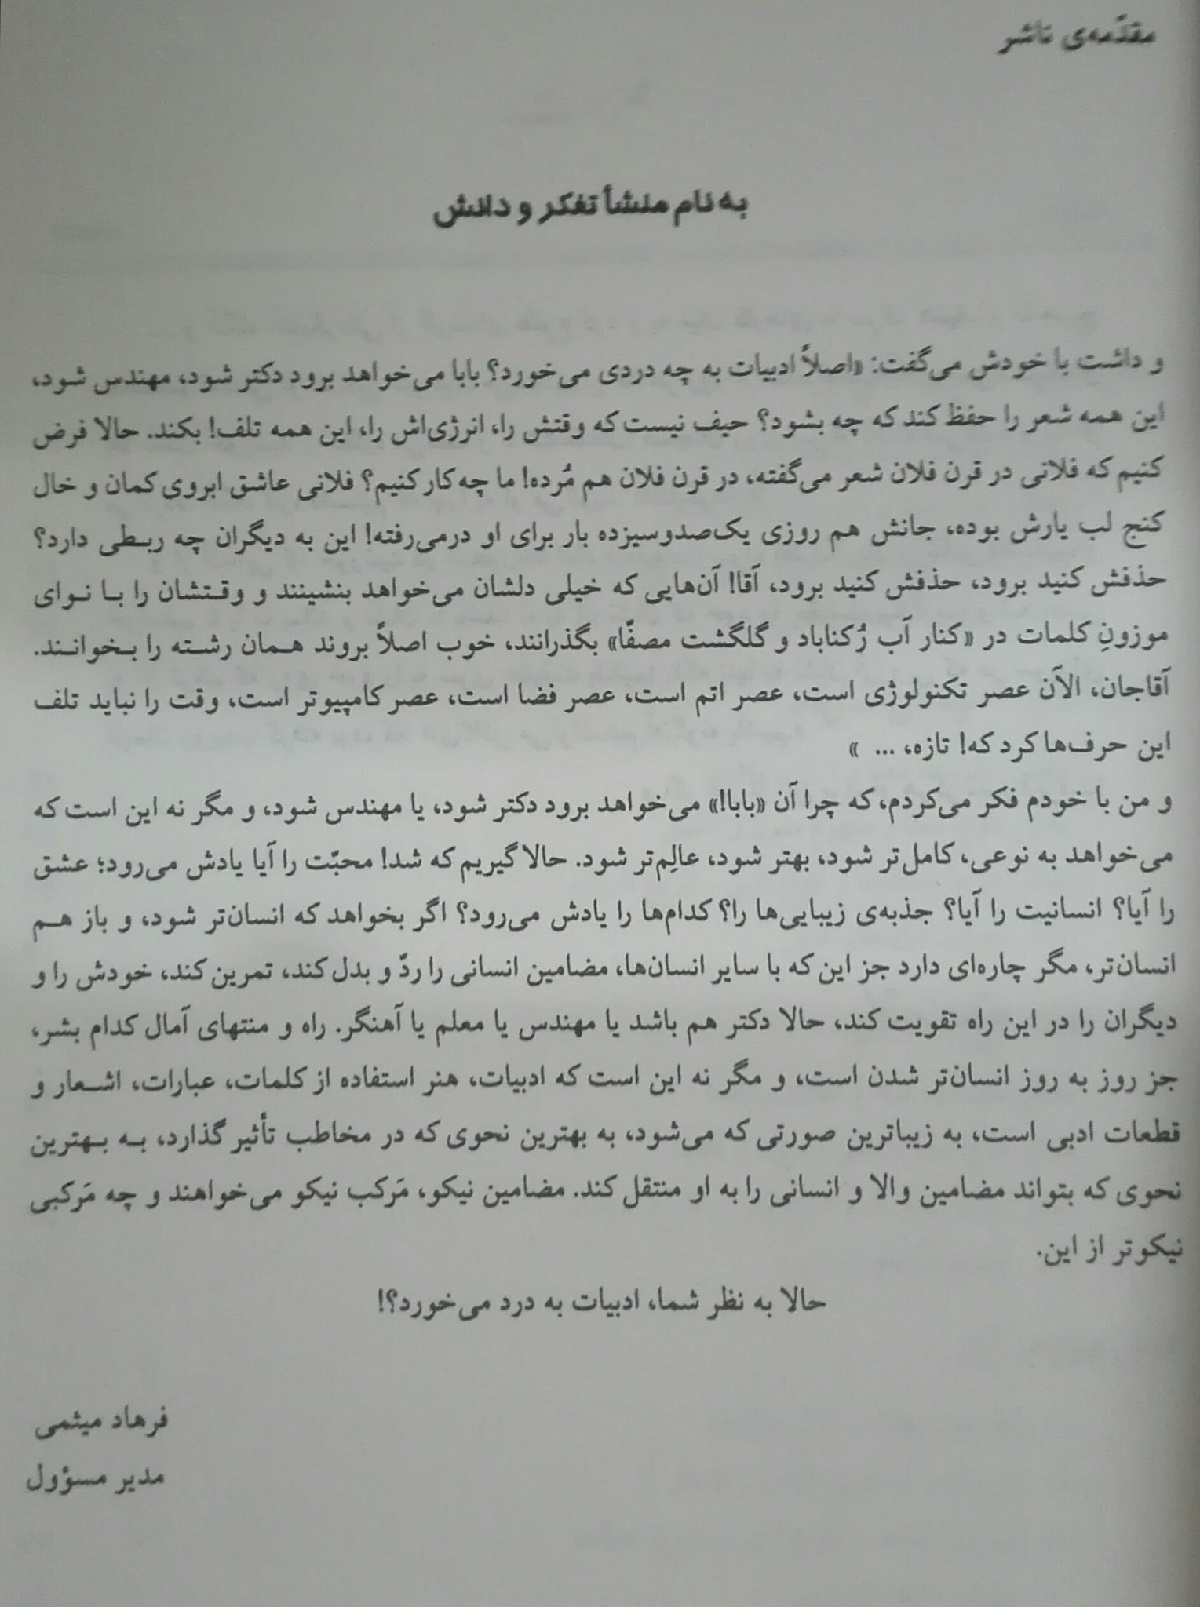 مقدّمه‌ی ناشر
به نام منشأ تفکر و دانش
و داشت با خودش می‌گفت: «اصلاً ادبیات به چه دردی می‌خورد؟ بابا می‌خواهد برود دکتر شود، مهندس شود،
این همه شعر را حفظ کند که چه بشود؟ حیف نیست که وقتش را، انرژی‌اش را، این همه تلف! بکند. حالا فرض
کنیم که فلانی در قرن فلان شعر می‌گفته، در قرن فلان هم مُرده! ما چه کار کنیم؟ فلانی عاشق ابروی کمان و خال
کنج لب یارش بوده، جانش هم روزی یک‌صدوسیزده بار برای او درمی‌رفته! این به دیگران چه ربطی دارد؟
حذفش کنید برود، حذفش کنید برود، آقا! آن‌هایی که خیلی دلشان می‌خواهد بنشینند و وقتشان را با نوای
موزونِ کلمات در «کنار آب رُکناباد و گلگشت مصفّا» بگذرانند، خوب اصلاً بروند همان رشته را بخوانند.
آقاجان، الآن عصر تکنولوژی است، عصر اتم است، عصر فضا است، عصر کامپیوتر است، وقت را نباید تلف
این حرف‌ها کرد که! تازه، ... »
و من با خودم فکر می‌کردم، که چرا آن «بابا!» می‌خواهد برود دکتر شود، یا مهندس شود، و مگر نه این است که
می‌خواهد به نوعی، کامل‌تر شود، بهتر شود، عالِم‌تر شود. حالا گیریم که شد! محبّت را آیا یادش می‌رود؛ عشق
را آیا؟ انسانیت را آیا؟ جذبه‌ی زیبایی‌ها را؟ کدام‌ها را یادش می‌رود؟ اگر بخواهد که انسان‌تر شود، و باز هم
انسان‌تر، مگر چاره‌ای دارد جز این که با سایر انسان‌ها، مضامین انسانی را ردّ و بدل کند، تمرین کند، خودش را و
دیگران را در این راه تقویت کند، حالا دکتر هم باشد یا مهندس یا معلم یا آهنگر. راه و منتهای آمال کدام بشر،
جز روز به روز انسان‌تر شدن است، و مگر نه این است که ادبیات، هنر استفاده از کلمات، عبارات، اشعار و
قطعات ادبی است، به زیباترین صورتی که می‌شود، به بهترین نحوی که در مخاطب تأثیر گذارد، به بهترین
نحوی که بتواند مضامین والا و انسانی را به او منتقل کند. مضامین نیکو، مَرکب نیکو می‌خواهند و چه مَرکبی
نیکوتر از این.
حالا به نظر شما، ادبیات به درد می‌خورد؟!
فرهاد میثمی
مدیر مسؤول